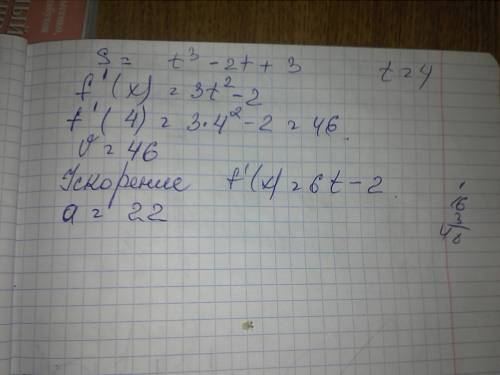 S = t³ - 2t + 3 t = 4
f'(x) = 3t² - 2
f'(4) = 3·4² - 2 = 46
v = 46
Ускорение f'(x) = 6t - 2
a = 22
16
3
48